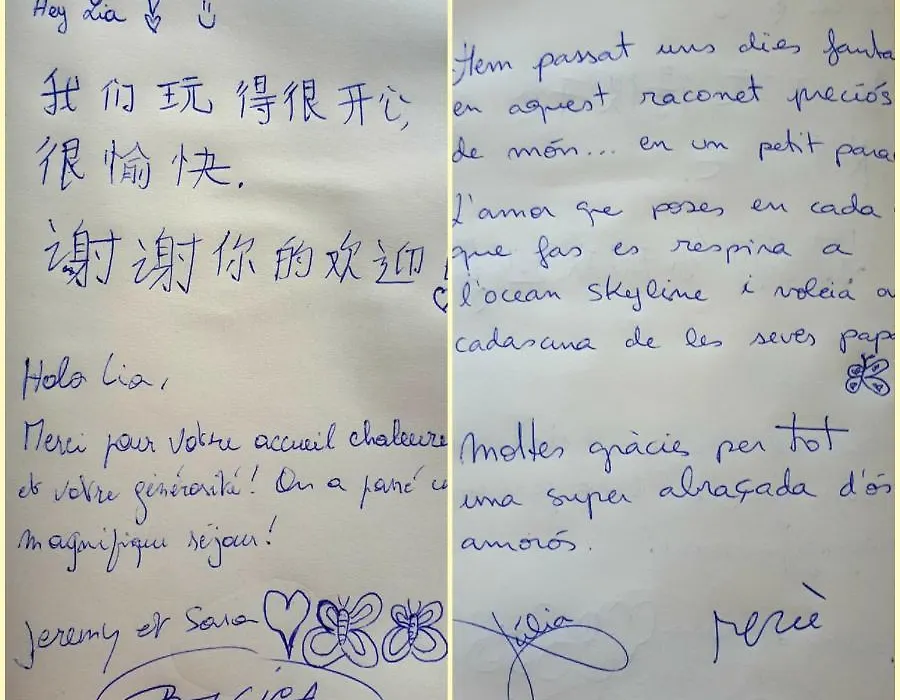 Hey Lia
我们玩得很开心,
很愉快.
谢谢你的欢迎!
Hola Lia,
Merci pour votre accueil chaleure
et votre générosité! On a passé u
magnifique séjour!
Jeremy et Sara
Hem passat uns dies fanta
en aquest raconet preciós
de món... en un petit para
L'amor que poses en cada
que fas es respira a
l'ocean skyline i voleiá a
cadascuna de les seves papa
Moltes gràcies per tot
una super abraçada d'ós
amorós.
Júlia Mercè